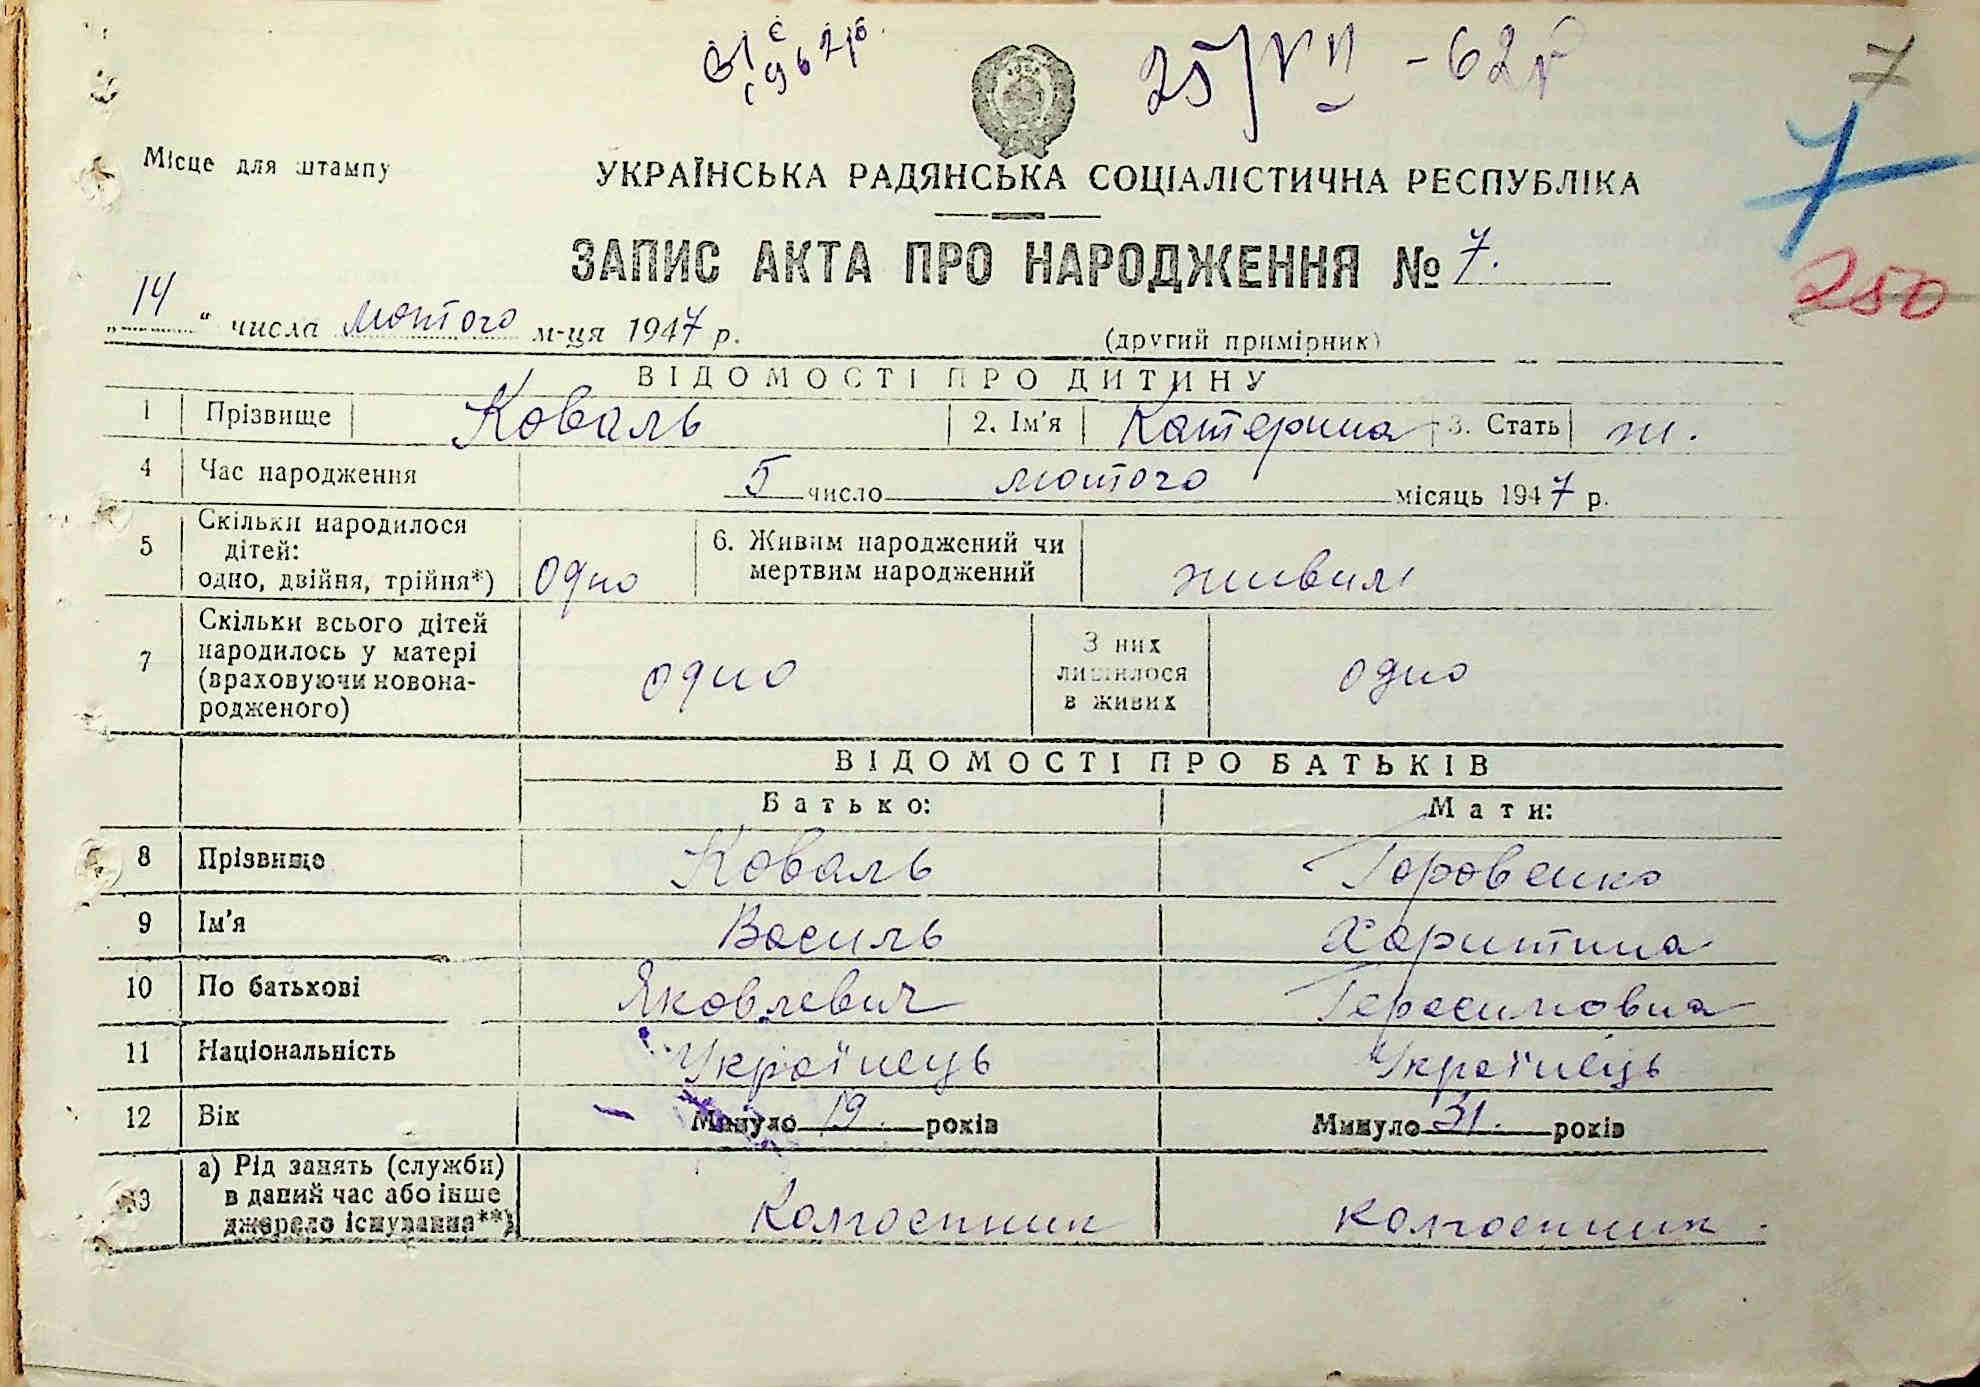 25/VII - 62 г
7
Місце для штампу
УКРАЇНСЬКА РАДЯНСЬКА СОЦІАЛІСТИЧНА РЕСПУБЛІКА
7
ЗАПИС АКТА ПРО НАРОДЖЕННЯ № 7.
250
„14“ числа лютого м-ця 1947 р.
(другий примірник)
ВІДОМОСТІ ПРО ДИТИНУ
1 Прізвище Коваль 2. Ім'я Катерина 3. Стать ж.
4 Час народження 5 число лютого місяць 1947 р.
5 Скільки народилося дітей: одно, двійня, трійня*) одно 6. Живим народжений чи мертвим народжений живим
7 Скільки всього дітей народилось у матері (враховуючи новонародженого) одно З них лишилося в живих одно
ВІДОМОСТІ ПРО БАТЬКІВ
Батько: Мати:
8 Прізвище Коваль Горовенко
9 Ім'я Василь Харитина
10 По батькові Яковлевич Герасимовна
11 Національність Українець Українець
12 Вік Минуло 19. років Минуло 31. років
13 а) Рід занять (служби)
в даний час або інше
джерело існування**) Колгоспник колгоспник.